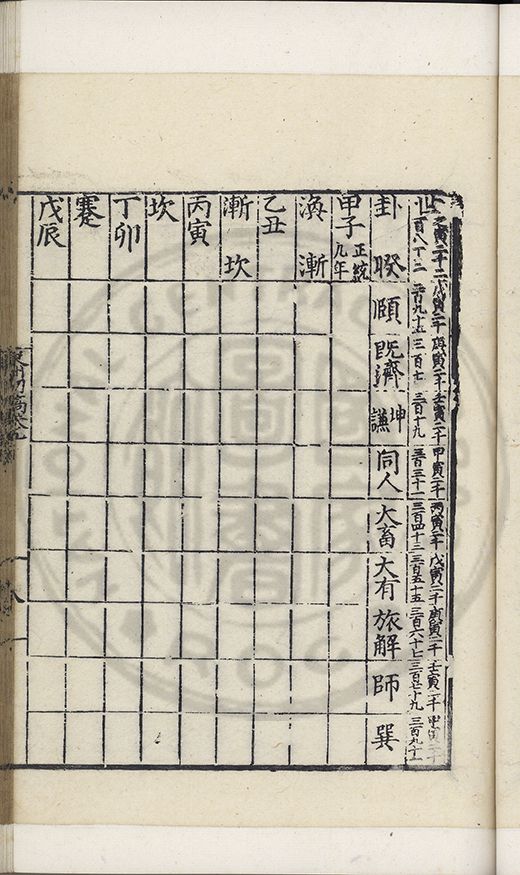 世
寅二千二 戊寅二千 庚寅二千 壬寅二千 甲寅二千 丙寅二千 戊寅二千 庚寅二千 壬寅二千 甲寅二千
二百九十五 三百七 三百十九 三百三十一 三百四十三 三百五十五 三百六十七 三百七十九 三百九十一
卦 睽 頤 既濟 坤謙 同人 大畜 大有 旅解 師 巽
甲子 正統九年
渙 漸
乙丑
漸 坎
丙寅
坎
丁卯
蹇
戊辰